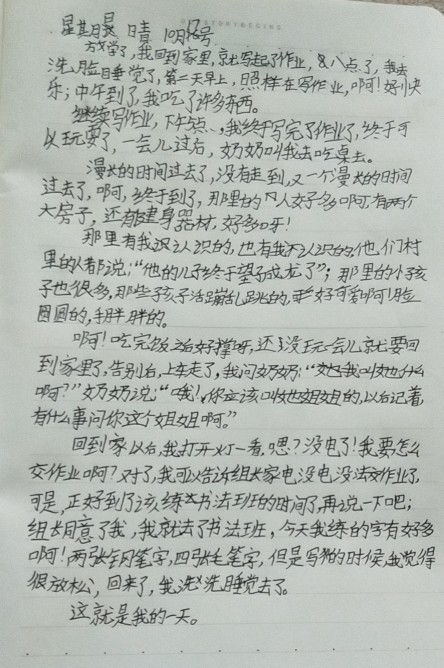 星其日 晴 10月 号
放学了,我回到家里,就写起了作业,8八点了,我去
洗脸睡觉了,第二天早上,照样在写作业,啊!好小快
乐;中午到了,我吃了许多东西。
继续写作业,下午 点,我终于写完了作业了,终于可
以玩耍了,一会儿过后,奶奶叫我去吃桌去。
漫长的时间过去了,没有走到,又一个漫长的时间
过去了,啊,终于到了,那里的人好多啊,有两个
大房子,还有建身器材,好多呀!
那里有我认识的,也有我不认识的,他们村
里的人都说:“他的儿子终于望子成龙了”;那里的小孩
子也很多,那些孩子活蹦乱跳的,好可爱啊!脸
圆圆的,手胖胖的。
啊!吃完饭 好撑呀,还没玩一会儿就要回
到家里了,告别后,上车走了,我问奶奶:“她我叫她什么
啊?”奶奶说:“哦!你应该叫她姐姐的,以后记着,
有什么事问你这个姐姐啊。”
回到家以后,我打开灯一看,嗯?没电了!我要怎么
交作业啊?对了,我可以告诉组长家电没电没法交作业了,
可是,正好到了该练书法班的时间了,再说一下吧;
组长同意了我,我就去了书法班,今天我练的字有好多
啊!两张钢笔字,四张毛笔字,但是写的时候,我觉得
很放松,回来了,我洗洗睡觉去了。
这就是我的一天。